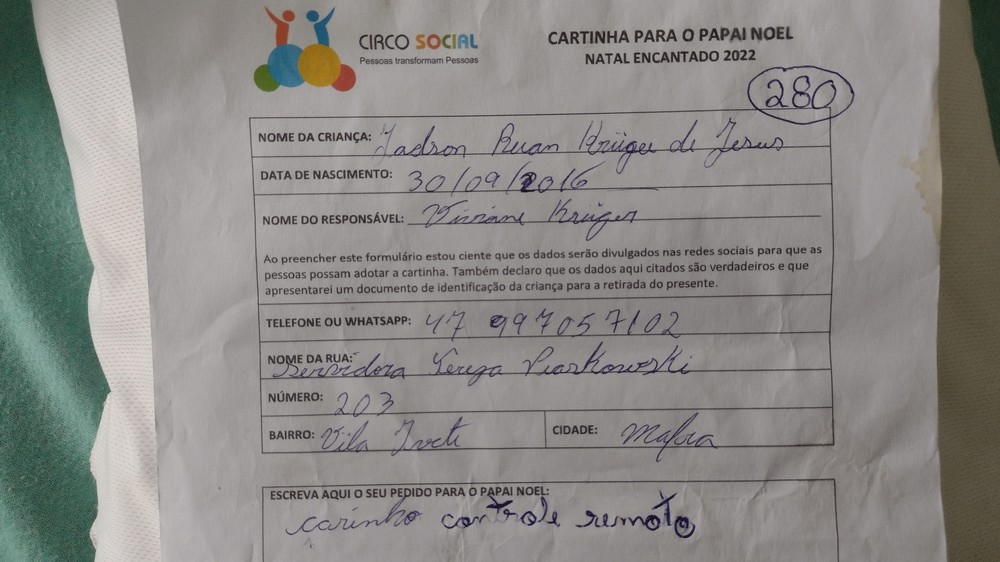 CIRCO SOCIAL
Pessoas transformam Pessoas
CARTINHA PARA O PAPAI NOEL
NATAL ENCANTADO 2022
280
NOME DA CRIANÇA: Jadson Ruan Krüger de Jesus
DATA DE NASCIMENTO: 30/09/2016
NOME DO RESPONSÁVEL: Viviane Krüger
Ao preencher este formulário estou ciente que os dados serão divulgados nas redes sociais para que as
pessoas possam adotar a cartinha. Também declaro que os dados aqui citados são verdadeiros e que
apresentarei um documento de identificação da criança para a retirada do presente.
TELEFONE OU WHATSAPP: 47 997057102
NOME DA RUA: Servidora Tereza
NÚMERO: 203
BAIRRO: Vila Ivete CIDADE: Mafra
ESCREVA AQUI O SEU PEDIDO PARA O PAPAI NOEL:
carinho controle remoto